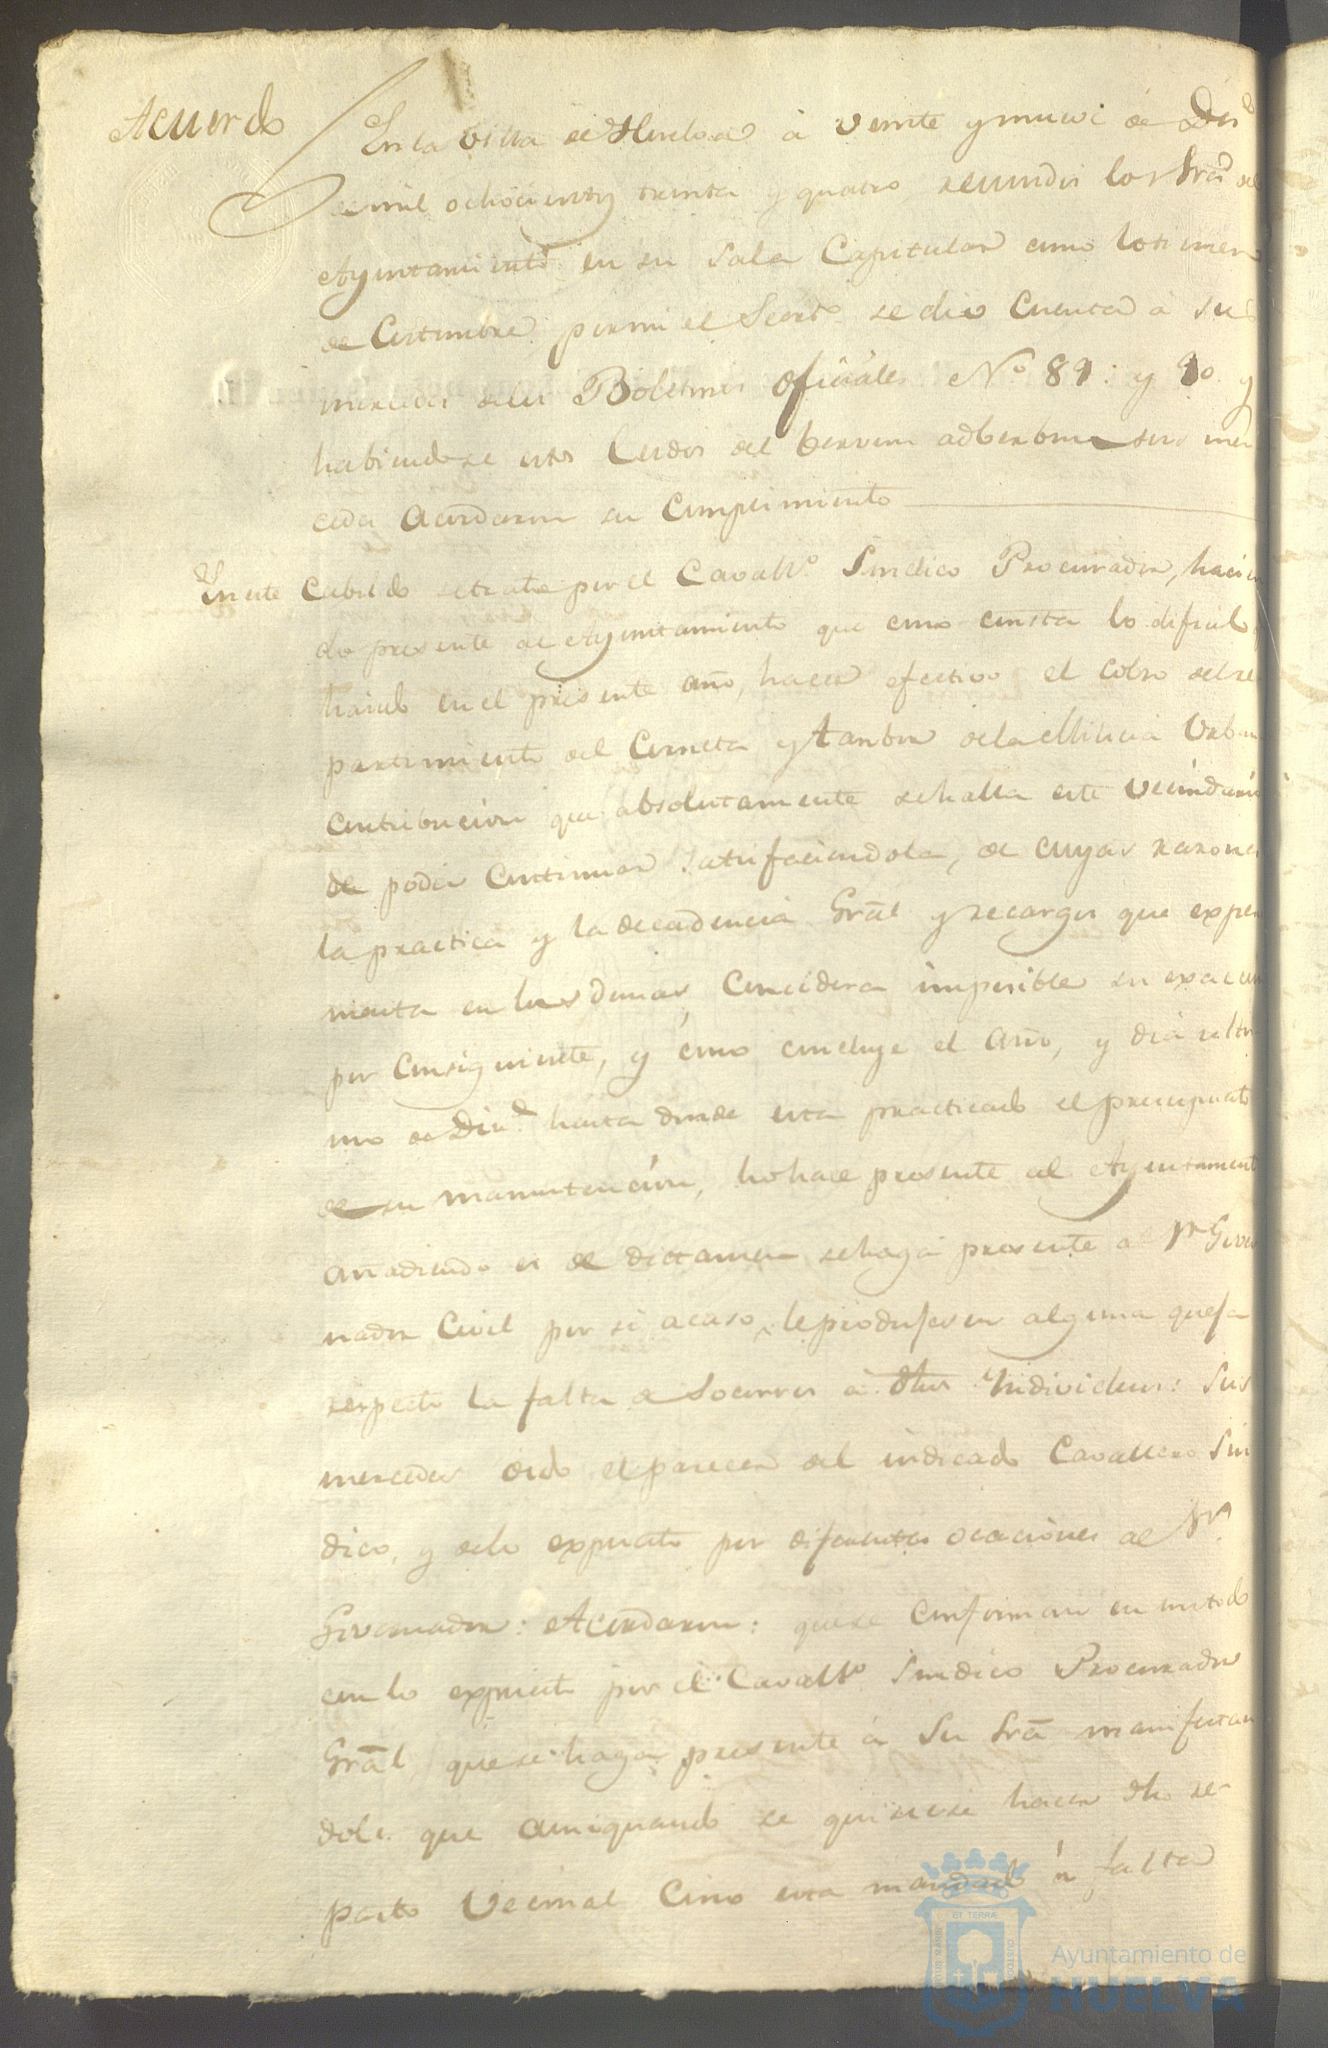 Acuerdo
En la Villa de Huelva à veinte y nueve de Dic.e
de mil ochocientos treinta y quatro reunidos los Sres del
Ayuntamiento en su Sala Capitular como lo tienen
de Costumbre por mi el Secret.o se dio Cuenta à sus
mercedes de los Boletines oficiáles N.o 89: y 90. y
habiendose estos leidos del berbum adberbum sus mer
cedes Acordaron su Cumplimiento
En este Cabildo se trato por el Cavall.o Sindico Procurador, hacien
do presente al Ayuntamiento que como consta lo dificil q.
há sido en el presente año, hacer efectivo el cobro del re
partimiento del Corneta y tambor de la Milicia Urbana
Contribucion que absolutamente se halla este vecindario
de poder Continuar satisfaciendola, de cuyas razones
la practica y la decadencia Grāl y recargos que esperi
menta en las demas, Concidera imposible su exaccion
por Consiguiente, y como concluye el Año, y dia ulti
mo de Dic.e hasta donde esta practicado el presupuesto
de su manutencion, lo hace presente al Ayuntamiento
añadiendo es de dictamen se haga presente al Sr Gover
nador Civil por si acaso le produjesen alguna queja
respecto la falta de Socorros à dhos Individuos: Sus
mercedes oido el parecer del indicado Cavallero Sin
dico, y de lo expuesto por diferentes ocaciónes al Sr.
Governador: Acordaron: que se conforman en un todo
con lo expuesto por el Cavall.o Sindico Procurador
Grāl, que se haga presente à Su Srā manifestan
dole que aun quando se quisiese hacer dho re
parto Vecinal Como esta mandado à falta
Ayuntamiento de
HUELVA